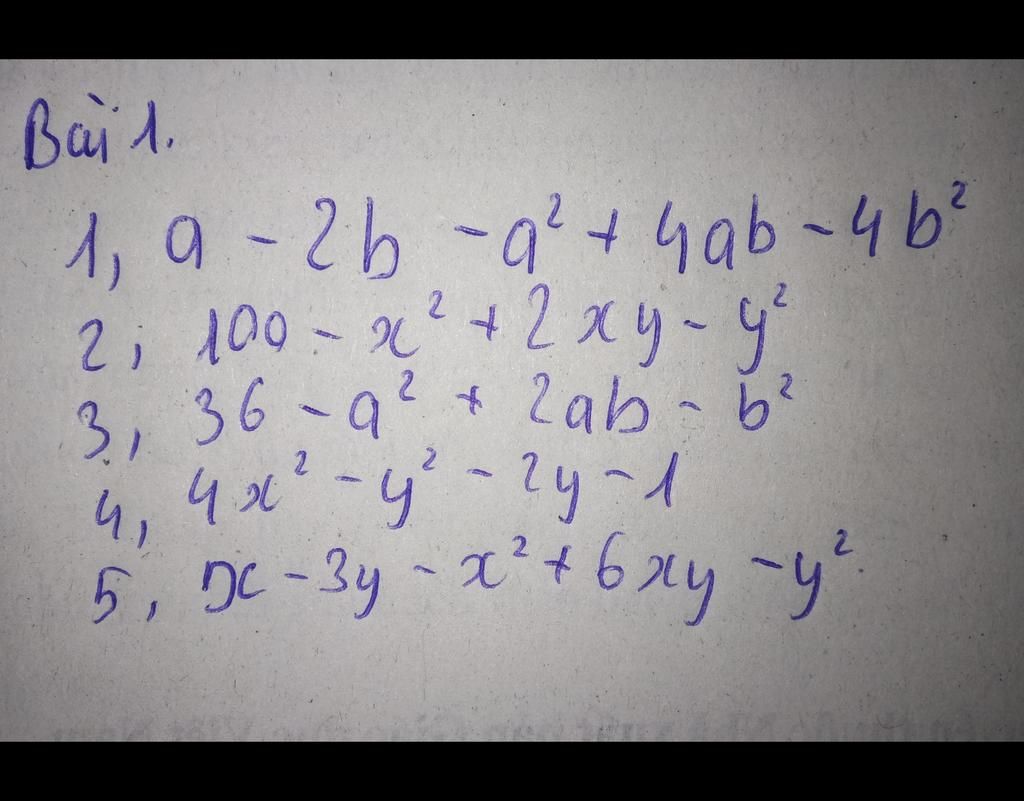 Bài 1.
1, a - 2b - a² + 4ab - 4b²
2, 100 - x² + 2xy - y²
3, 36 - a² + 2ab - b²
4, 4x² - y² - 2y - 1
5, x - 3y - x² + 6xy - y²